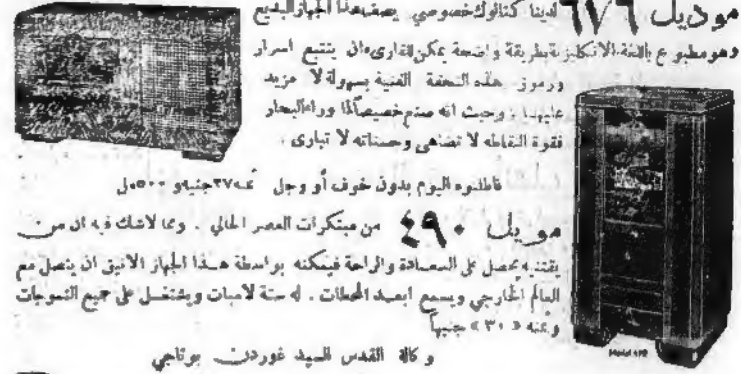 موديل ٦٧٦ لدينا كتالوك خصوصي يصف هذا الجهاز البديع
وهو مطبوع باللغة الانكليزية بطريقة واضحة يمكن للقارىء ان يتتبع اسرار
ورموز هذه التحفة الفنية بسهولة لا مزيد
عليها ، وحيث انه صنع خصيصاً لما وراء البحار
فقوة التقاطه لا تضاهى وحسناته لا تبارى .
فاطلبوه اليوم بدون خوف أو وجل ثمنه ٣٧ جنيه و ٥٠٠ مل
موديل ٤٩٠ من مبتكرات العصر الحالي . ومما لاشك فيه ان من
يقتنيه يحصل على السعادة والراحة فيمكنه بواسطة هذا الجهاز الانيق ان يتصل مع
العالم الخارجي ويسمع ابعد المحطات . له ستة لامبات ويشتغل على جميع التموجات
وثمنه « ٣٠ » جنيهاً
وكالة القدس السيد غوردن بوتاجي